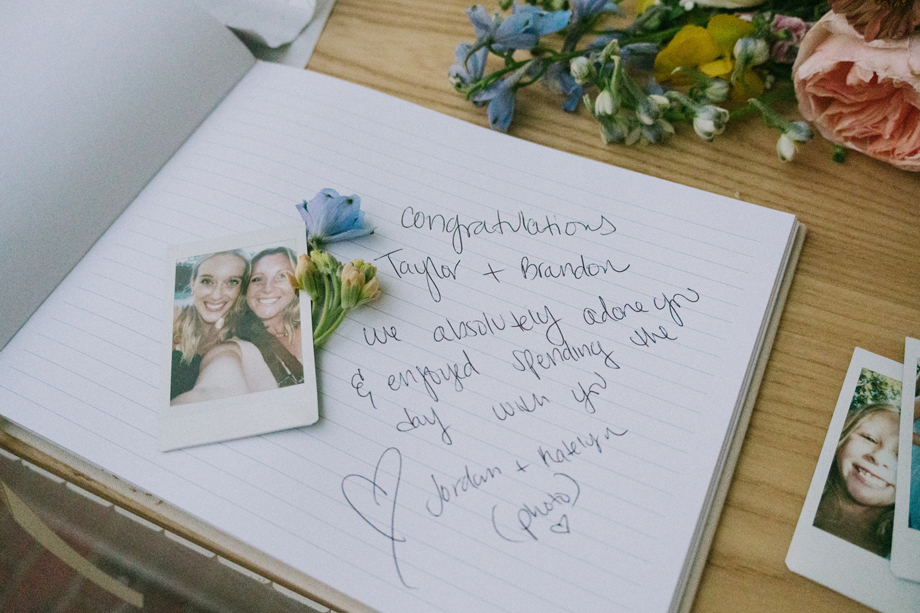 congratulations
Taylor + Brandon
we absolutely adore you
& enjoyed spending the
day with you
Jordan + Katelyn
(photo)